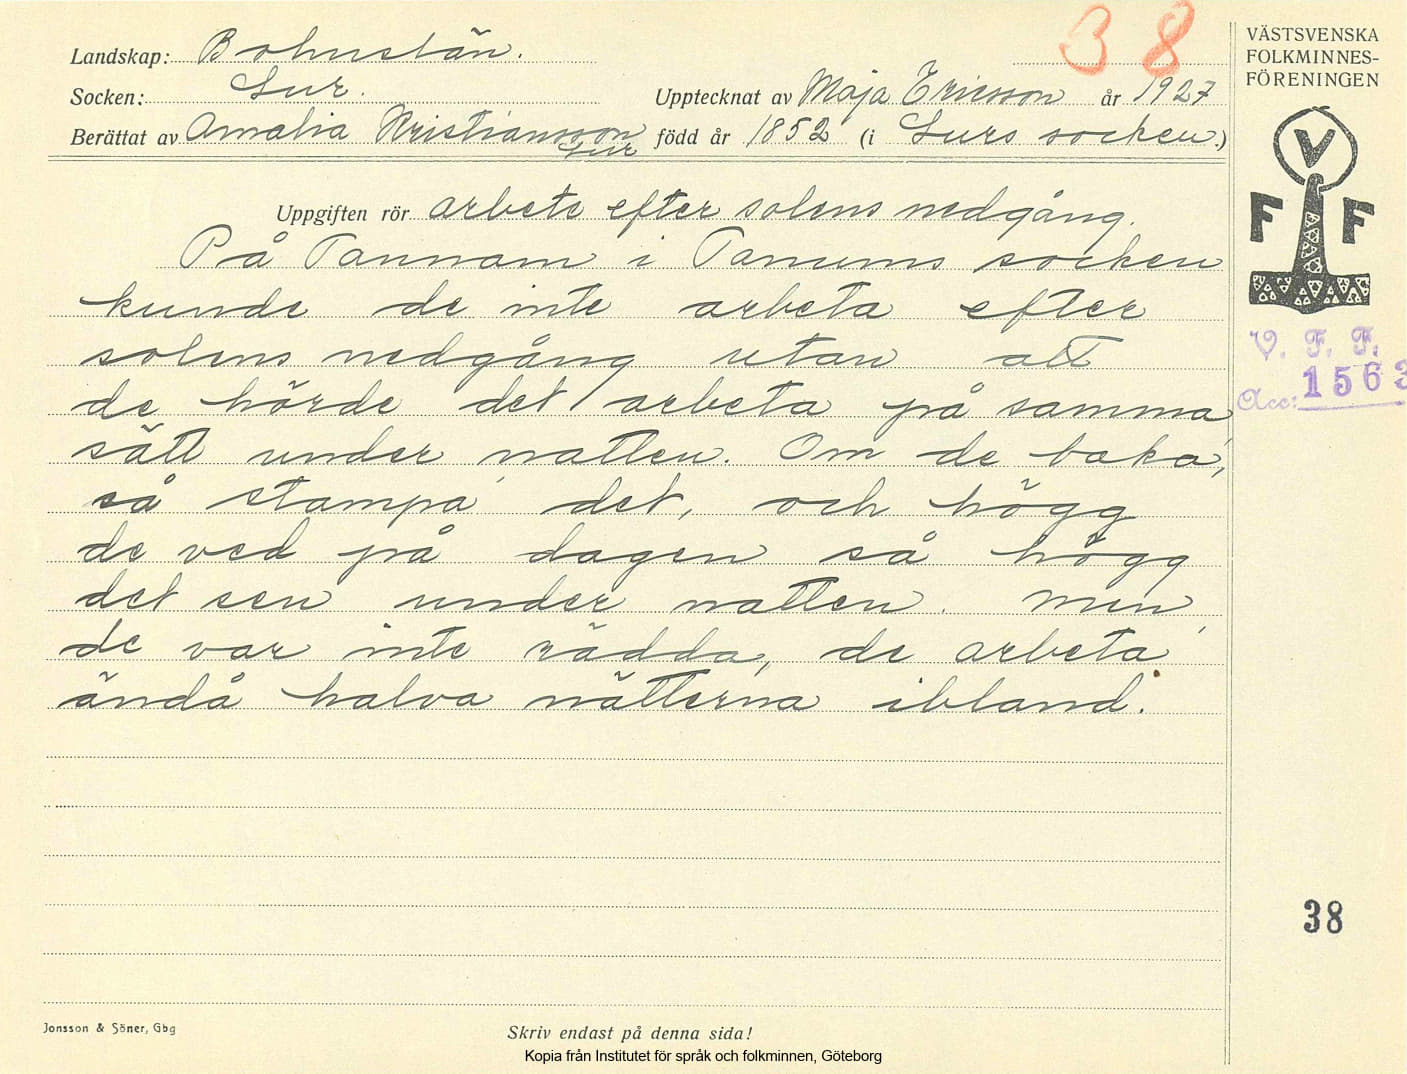 38
Landskap: Bohuslän.
Socken: Lur.
Upptecknat av Maja Ericsson år 1927
Berättat av Amalia Kristiansson Lur född år 1852 (i Lurs socken.)
VÄSTSVENSKA
FOLKMINNES-
FÖRENINGEN
V
F F
V. F. F.
Acc: 1563
Uppgiften rör arbete efter solens nedgång.
På Tannam i Tanums socken
kunde de inte arbeta efter
solens nedgång utan att
de hörde det arbeta på samma
sätt under natten. Om de baka,
så stampa det, och högg
de ved på dagen så högg
det sen under natten. Men
de var inte rädda, de arbeta
ändå halva nätterna ibland.
38
Jonsson & Söner, Gbg
Skriv endast på denna sida!
Kopia från Institutet för språk och folkminnen, Göteborg